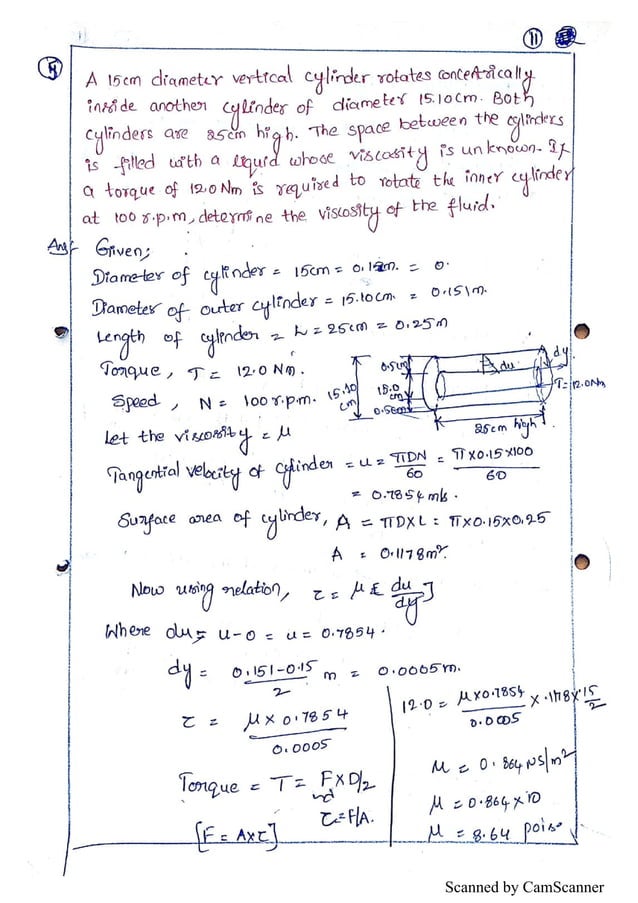 11
4
A 15cm diameter vertical cylinder rotates concentrically
inside another cylinder of diameter 15.10cm. Both
cylinders are 25cm high. The space between the cylinders
is filled with a liquid whose viscosity is unknown. If
a torque of 12.0Nm is required to rotate the inner cylinder
at 100 r.p.m, determine the viscosity of the fluid.
Ans:- Given;
Diameter of cylinder = 15cm = 0.15m. = 0.
Diameter of outer cylinder = 15.10cm. = 0.151m.
Length of cylinder = L = 25cm = 0.25m
Torque, T = 12.0 Nm.
Speed, N = 100 r.p.m.
15.10 cm
0.5cm
15.0 cm
0.5cm
A du
dy
T=12.0Nm
25cm high
Let the viscosity = μ
Tangential velocity of cylinder = u = πDN/60 = π×0.15×100/60
= 0.7854 m/s.
Surface area of cylinder, A = πD×L = π×0.15×0.25
A = 0.1178m².
Now using relation, τ = μ[du/dy]
Where du = u-0 = u = 0.7854.
dy = 0.151-0.15/2 m = 0.0005m.
τ = μ×0.7854/0.0005
Torque = T = F×D/2
nd
τ=F/A.
[F = A×τ]
12.0 = μ×0.7854/0.0005 × .1178×.15/2
μ = 0.864 NS/m²
μ = 0.864×10
μ = 8.64 poise
Scanned by CamScanner